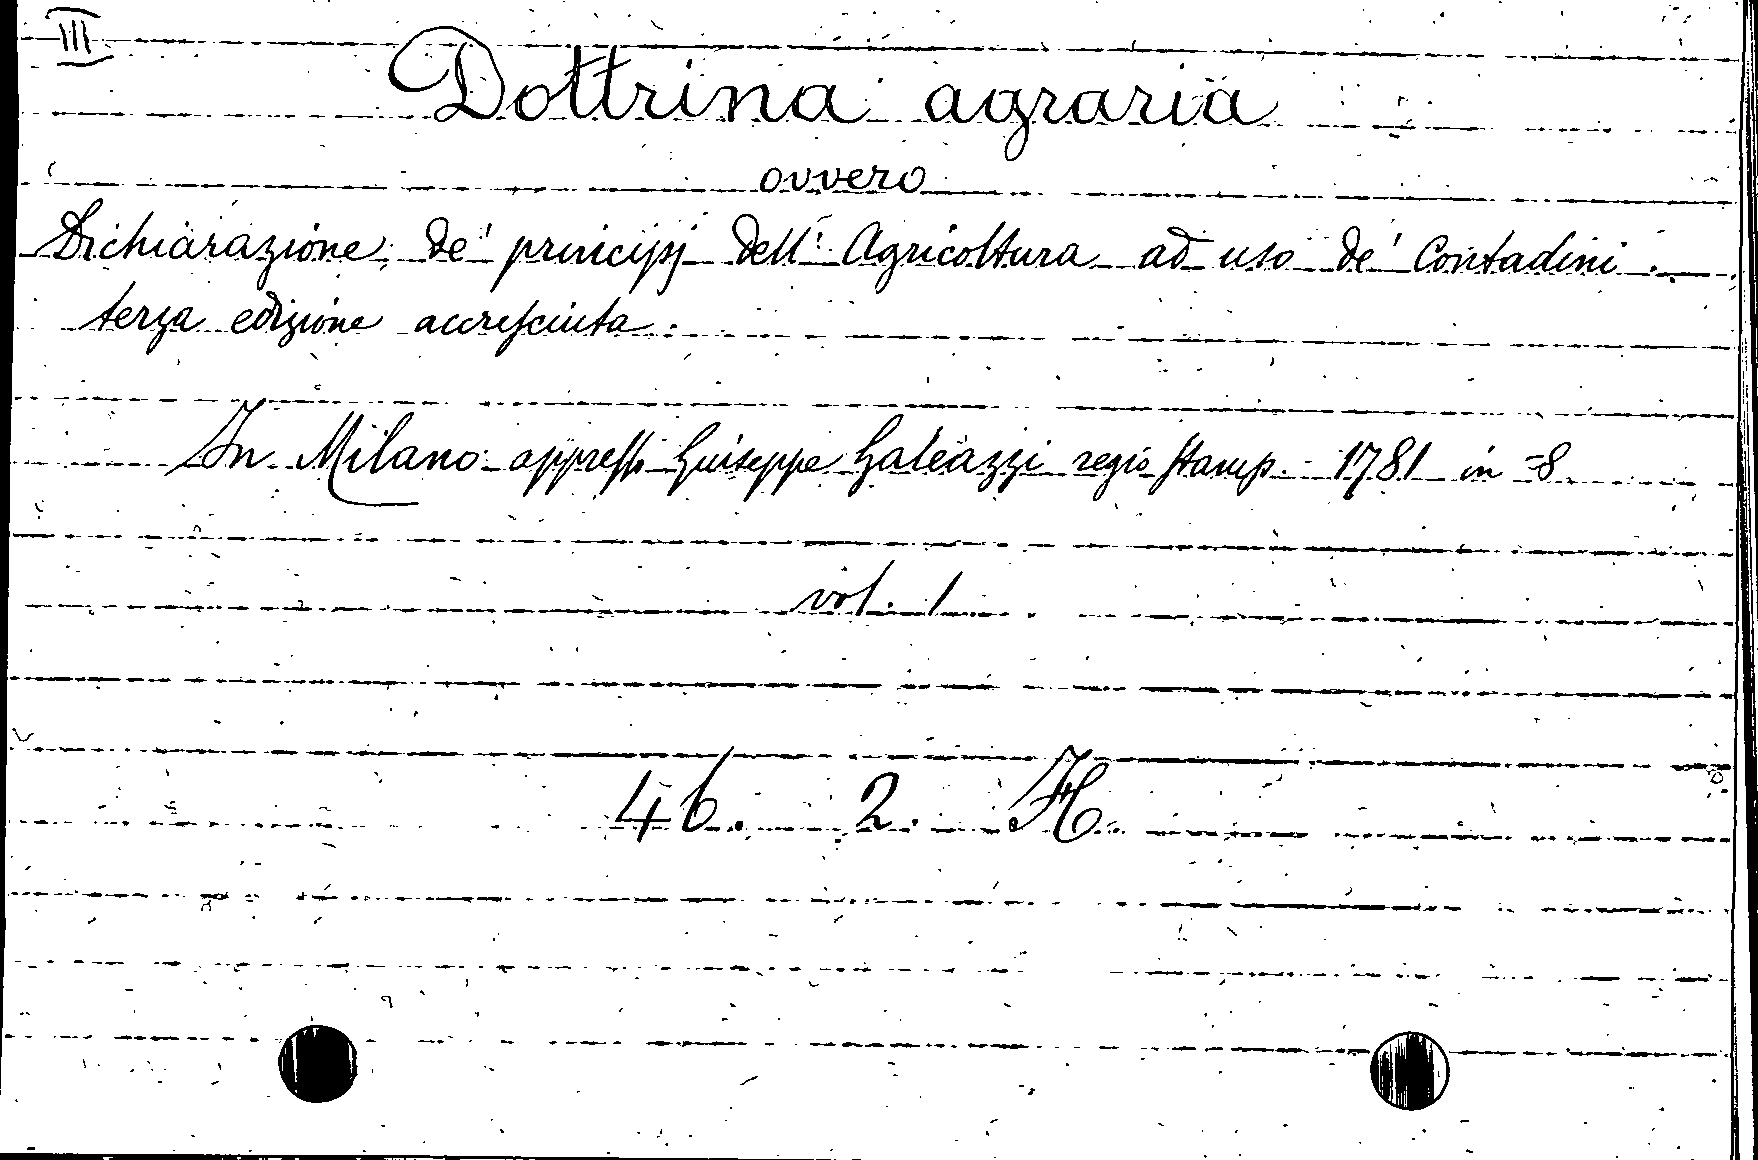 III
Dottrina agraria
ovvero
Dichiarazione de' principj dell' Agricoltura ad uso de' Contadini.
terza edizione accresciuta.
In Milano appresso Giuseppe Galeazzi regio stamp. 1781 in =8.
vol. 1.
46. 2. H.